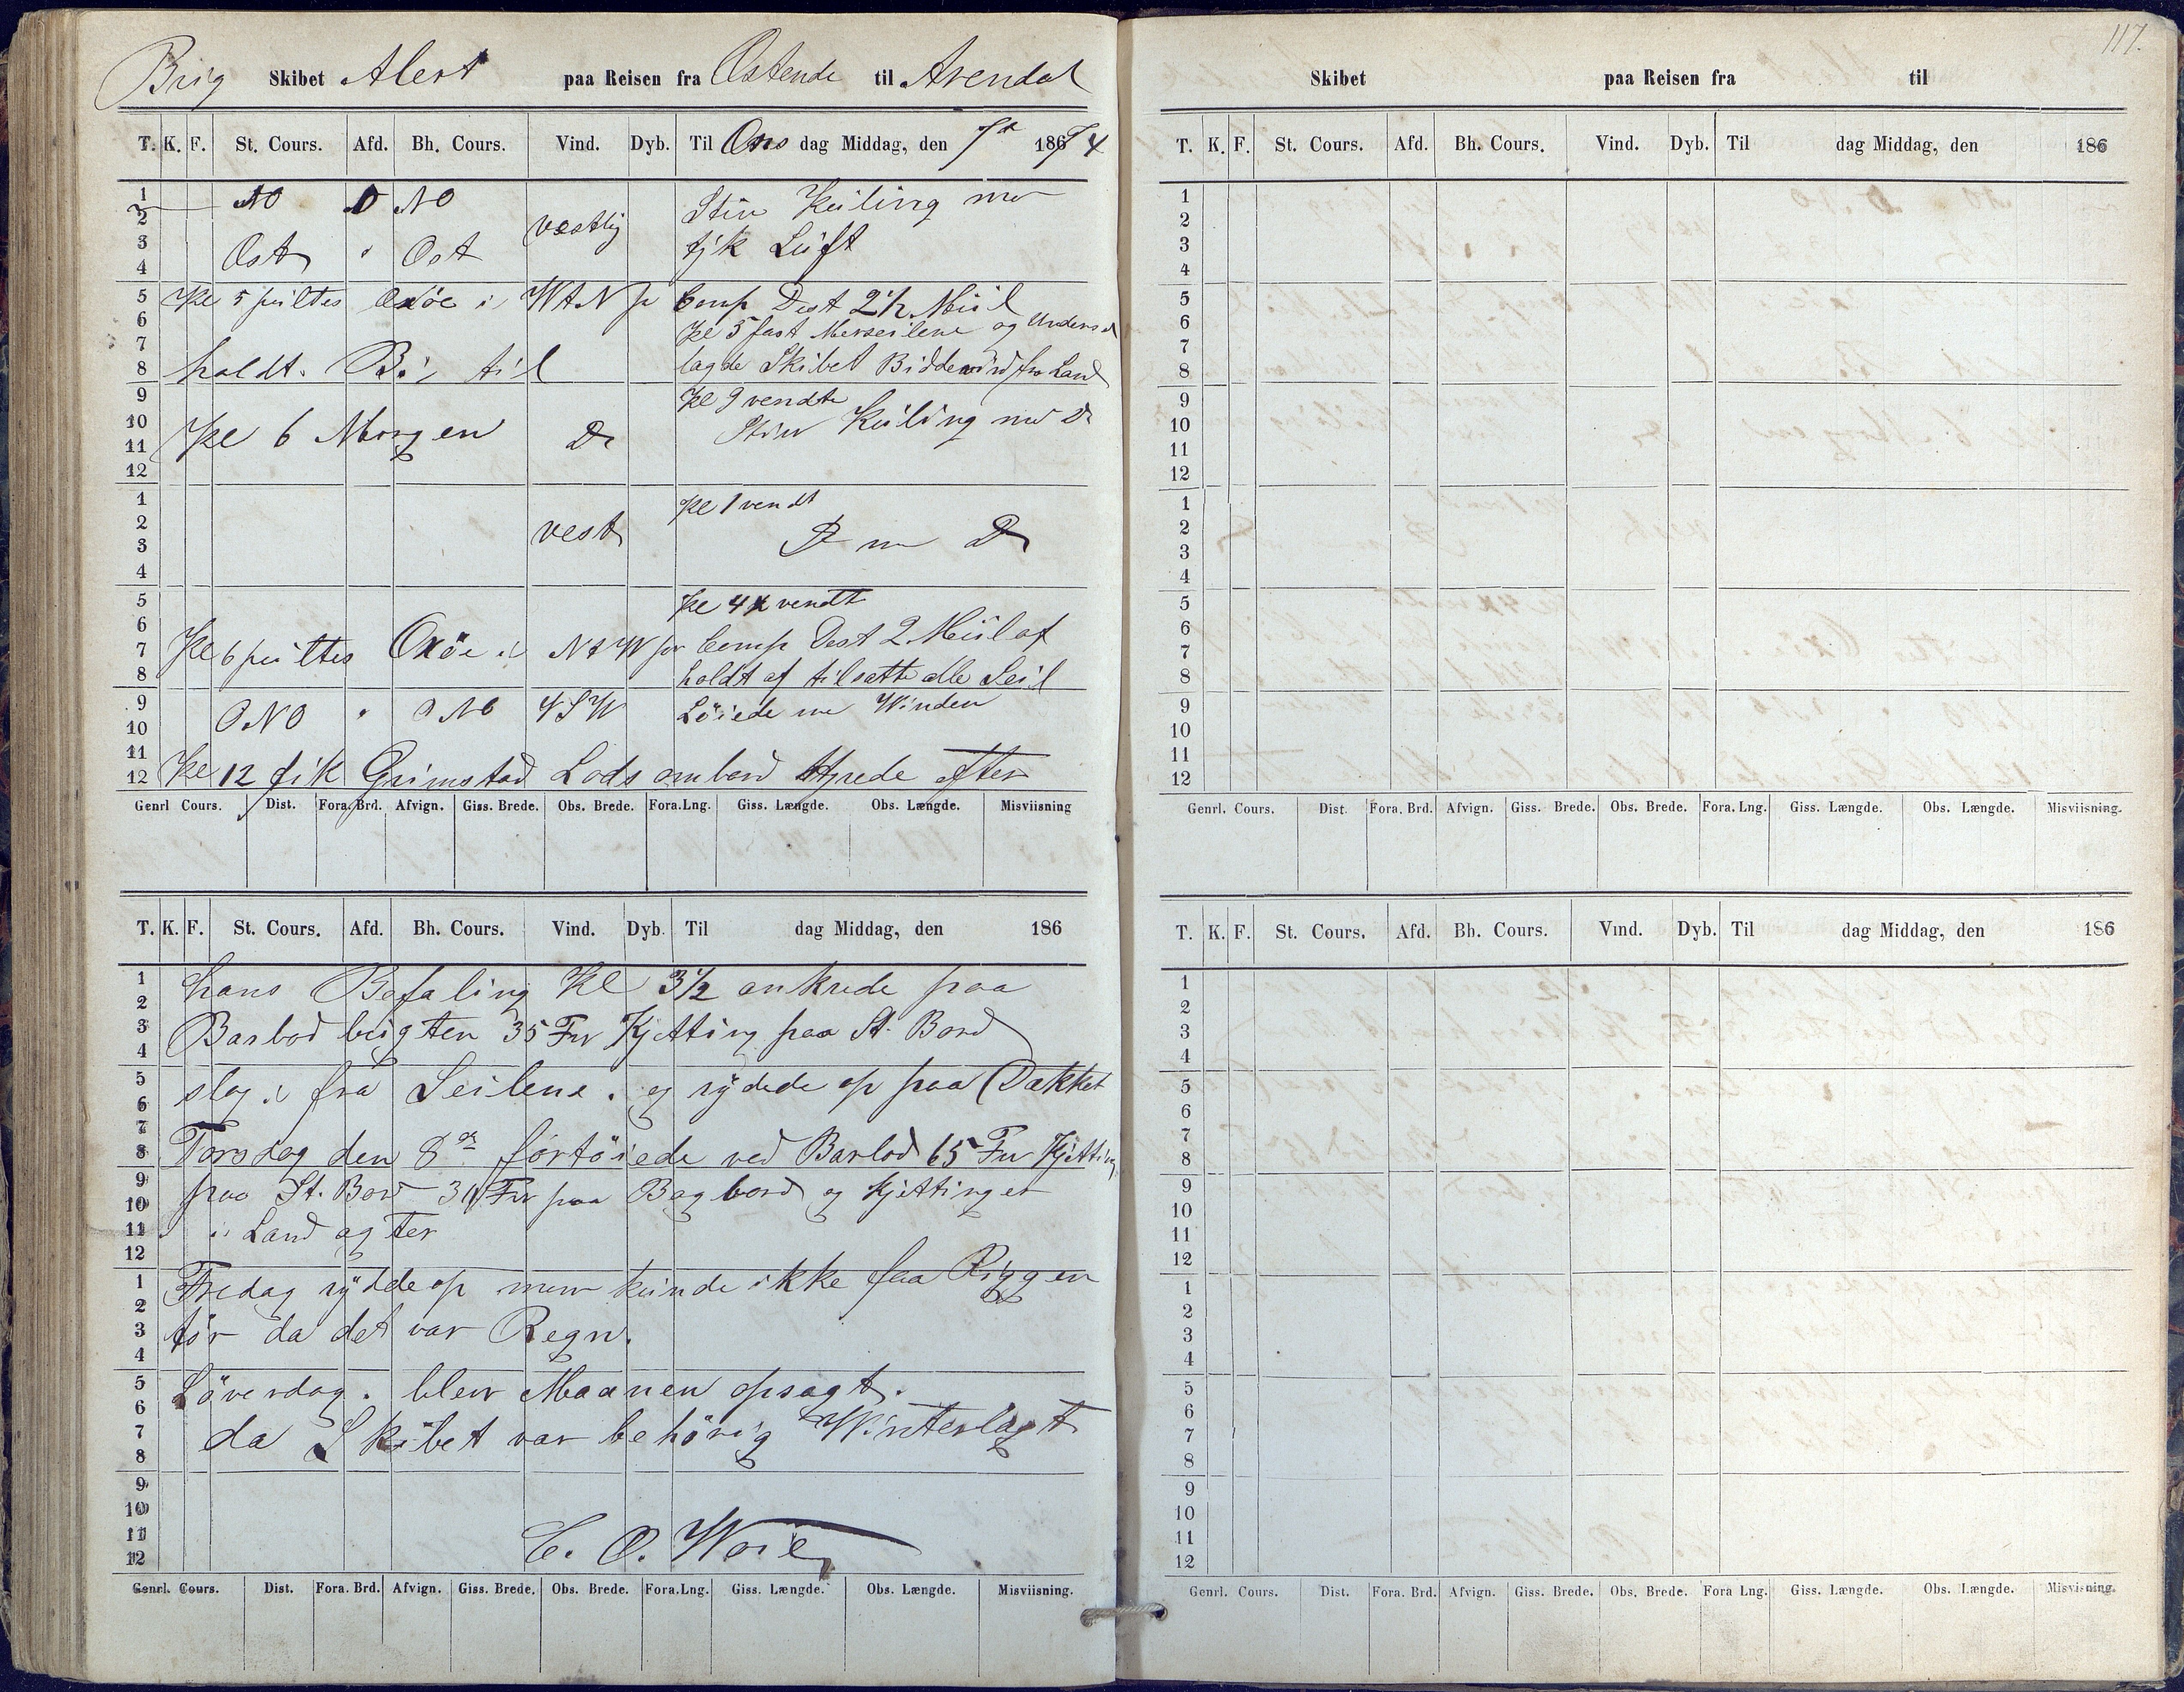 Brig Skibet Alert paa Reisen fra Ostende til Arendal
T. K. F. St. Cours. Afd. Bh. Cours. Vind. Dyb. Til Ons dag Middag, den 7de 18674
1 NO D NO Stiv Kuling med
2 vestlig
3 Ost " Ost tyk Luft
4
5 Kl 5 peiltes Oxöe i WtN pr Comp Dest 2 1/2 Miil
6 Kl 5 fast Merseilene og Unders
7 lagde Skibet Biddevind fra Land
8 holdt Bi til
9 Kl 9 vendte
10 Kl 6 Morgen Do Stiv Kuling med Do
11
12
1 Kl 1 vendt
2 vest D m D
3
4
5 Kl 4 vendt
6
7 Kl 6 peiltes Oxöe i NtW pr Comp Dest 2 Miil af
8 holdt af tilsatte alle Seil
9 ONO " ONO VSW Löiede med Winden
10
11
12 Kl 12 fik Grimstad Lods ombord styrede efter
Genrl Cours. Dist. Fora. Brd. Afvign. Giss. Brede. Obs. Brede. Fora. Lng. Giss. Længde. Obs. Længde. Misviisning
T. K. F. St. Cours. Afd. Bh. Cours. Vind. Dyb. Til dag Middag, den 186
1 hans Befaling Kl 3 1/2 ankrede paa
2
3 Barbod bugten 35 Fv Kjetting paa St. Bord
4
5 slog i fra Seilene. og rydede op paa Dækket
6
7
8 Torsdag den 8de fortöiede ved Barbod 65 Fv Kjetting
9 paa St. Bord 30 Fv paa Bagbord og Kjettinger
10
11 i Land agter
12
1 Fredag rydde op men kunde ikke faa Riggen
2
3 tör da det var Regn.
4
5 Löverdag. blev Maanen opsagt.
6
7 da Skibet var behörig Winterlagt
8
9
10
11 C. O. Woie
12
Genrl. Cours. Dist. Fora. Brd. Afvign. Giss. Brede. Obs. Brede. Fora. Lng. Giss. Længde. Obs. Længde. Misviisning.
117.
Skibet paa Reisen fra til
T. K. F. St. Cours. Afd. Bh. Cours. Vind. Dyb. Til dag Middag, den 186
1
2
3
4
5
6
7
8
9
10
11
12
1
2
3
4
5
6
7
8
9
10
11
12
Genrl. Cours. Dist. Fora. Brd. Afvign. Giss. Brede. Obs. Brede. Fora. Lng. Giss. Længde. Obs. Længde. Misviisning.
T. K. F. St. Cours. Afd. Bh. Cours. Vind. Dyb. Til dag Middag, den 186
1
2
3
4
5
6
7
8
9
10
11
12
1
2
3
4
5
6
7
8
9
10
11
12
Genrl. Cours. Dist. Fora. Brd. Afvign. Giss. Brede. Obs. Brede. Fora Lng. Giss. Længde. Obs. Længde. Misvisning.